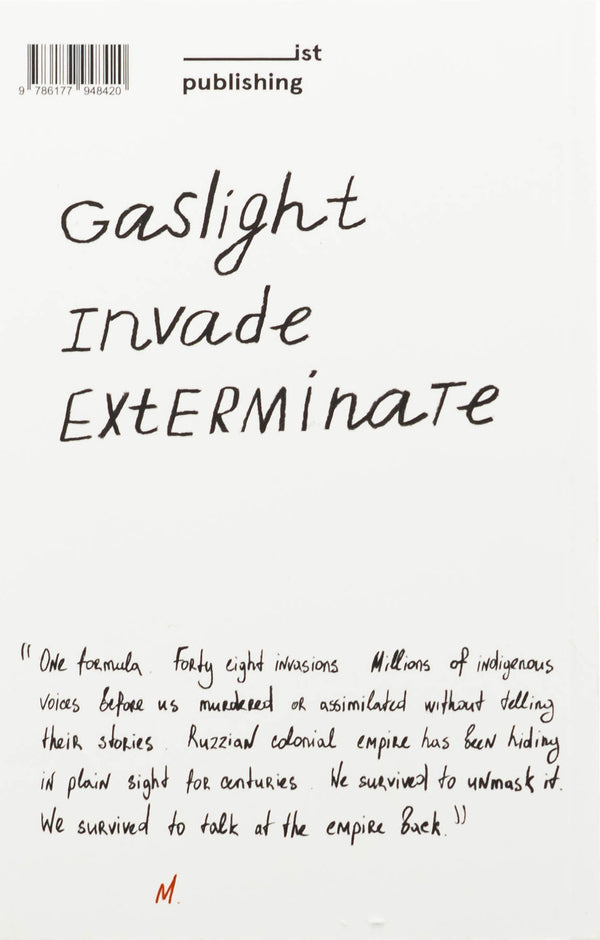 _______ist
publishing
9 786177 948420
Gaslight
Invade
EXtERMinaTe
"One formula. Forty eight invasions Millions of indigenous
voices before us murdered or assimilated without telling
their stories. Ruzzian colonial empire has been hiding
in plain sight for centuries. We survived to unmask it.
We survived to talk at the empire back."
M.